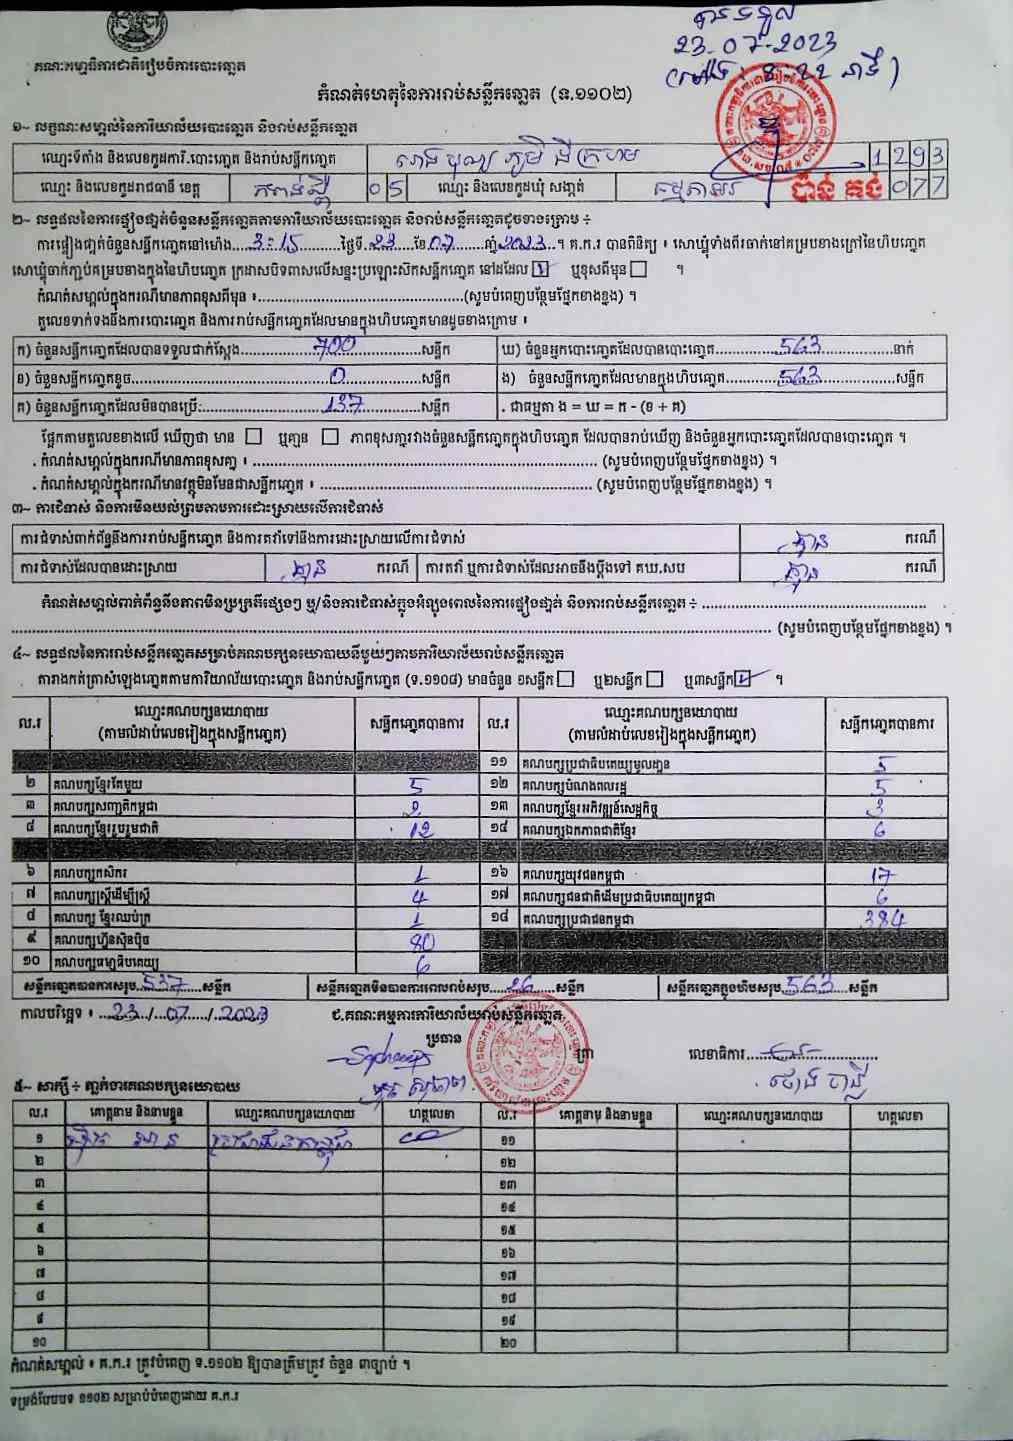 បានទទួល
23-07-2023
គណៈកម្មាធិការជាតិរៀបចំការបោះឆ្នោត
កំណត់ហេតុនៃការរាប់សន្លឹកឆ្នោត (ទ.១១០២)
១~ លក្ខណៈសម្គាល់នៃការិយាល័យបោះឆ្នោត និងរាប់សន្លឹកឆ្នោត
ឈ្មោះទីតាំង និងលេខកូដការិ.បោះឆ្នោត និងរាប់សន្លឹកឆ្នោត រោងបុណ្យ ភូមិ ដីក្រហម 1293
ឈ្មោះ និងលេខកូដរាជធានី ខេត្ត កំពង់ស្ពឺ 05 ឈ្មោះ និងលេខកូដឃុំ សង្កាត់ 077
២~ លទ្ធផលនៃការផ្ទៀងផ្ទាត់ចំនួនសន្លឹកឆ្នោតតាមការិយាល័យបោះឆ្នោត និងរាប់សន្លឹកឆ្នោតដូចខាងក្រោម ៖
ការផ្ទៀងផ្ទាត់ចំនួនសន្លឹកឆ្នោតនៅម៉ោង...3:15...ថ្ងៃទី.23...ខែ.07...ឆ្នាំ.2023...។ គ.ក.រ បានពិនិត្យ ៖ សោឃ្នុំទាំងពីរចាក់នៅគម្របខាងក្រៅនៃហិបឆ្នោត
សោឃ្នុំចាក់ភ្ជាប់គម្របខាងក្នុងនៃហិបឆ្នោត ក្រដាសបិទពាសលើសន្ទះប្រឡោះស៊កសន្លឹកឆ្នោត នៅដដែល ☑ ឬខុសពីមុន ☐ ។
កំណត់សម្គាល់ក្នុងករណីមានភាពខុសពីមុន ៖...(សូមបំពេញបន្ថែមផ្នែកខាងខ្នង) ។
តួលេខទាក់ទងនឹងការបោះឆ្នោត និងការរាប់សន្លឹកឆ្នោតដែលមានក្នុងហិបឆ្នោតមានដូចខាងក្រោម ៖
ក) ចំនួនសន្លឹកឆ្នោតដែលបានទទួលជាក់ស្ដែង...700...សន្លឹក ឃ) ចំនួនអ្នកបោះឆ្នោតដែលបានបោះឆ្នោត...563...នាក់
ខ) ចំនួនសន្លឹកឆ្នោតខូច...0...សន្លឹក ង) ចំនួនសន្លឹកឆ្នោតដែលមានក្នុងហិបឆ្នោត...563...សន្លឹក
គ) ចំនួនសន្លឹកឆ្នោតដែលមិនបានប្រើ:...137...សន្លឹក . ជាធម្មតា ង = ឃ = ក - (ខ + គ)
ផ្អែកតាមតួលេខខាងលើ ឃើញថា មាន ☐ ឬគ្មាន ☐ ភាពខុសគ្នារវាងចំនួនសន្លឹកឆ្នោតក្នុងហិបឆ្នោត ដែលបានរាប់ឃើញ និងចំនួនអ្នកបោះឆ្នោតដែលបានបោះឆ្នោត ។
. កំណត់សម្គាល់ក្នុងករណីមានភាពខុសគ្នា ៖ ... (សូមបំពេញបន្ថែមផ្នែកខាងខ្នង) ។
. កំណត់សម្គាល់ក្នុងករណីមានវត្ថុមិនមែនជាសន្លឹកឆ្នោត ៖ ... (សូមបំពេញបន្ថែមផ្នែកខាងខ្នង) ។
៣~ ការជំទាស់ និងការមិនយល់ព្រមតាមការដោះស្រាយលើការជំទាស់
ការជំទាស់ពាក់ព័ន្ធនឹងការរាប់សន្លឹកឆ្នោត និងការតវ៉ាទៅនឹងការដោះស្រាយលើការជំទាស់ គ្មាន ករណី
ការជំទាស់ដែលបានដោះស្រាយ គ្មាន ករណី ការតវ៉ា ឬការជំទាស់ដែលអាចនឹងប្ដឹងទៅ គឃ.សប គ្មាន ករណី
កំណត់សម្គាល់ពាក់ព័ន្ធនឹងភាពមិនប្រក្រតីផ្សេងៗ ឬ/និងការជំទាស់ក្នុងអំឡុងពេលនៃការផ្ទៀងផ្ទាត់ និងការរាប់សន្លឹកឆ្នោត ៖ ...
... (សូមបំពេញបន្ថែមផ្នែកខាងខ្នង) ។
៤~ លទ្ធផលនៃការរាប់សន្លឹកឆ្នោតសម្រាប់គណបក្សនយោបាយនីមួយៗតាមការិយាល័យរាប់សន្លឹកឆ្នោត
តារាងកត់ត្រាសំឡេងឆ្នោតតាមការិយាល័យបោះឆ្នោត និងរាប់សន្លឹកឆ្នោត (ទ.១១០៨) មានចំនួន ១សន្លឹក ☐ ឬ២សន្លឹក ☐ ឬ៣សន្លឹក ☑ ។
ល.រ ឈ្មោះគណបក្សនយោបាយ (តាមលំដាប់លេខរៀងក្នុងសន្លឹកឆ្នោត) សន្លឹកឆ្នោតបានការ ល.រ ឈ្មោះគណបក្សនយោបាយ (តាមលំដាប់លេខរៀងក្នុងសន្លឹកឆ្នោត) សន្លឹកឆ្នោតបានការ
១១ គណបក្សប្រជាធិបតេយ្យមូលដ្ឋាន 5
២ គណបក្សខ្មែរតែមួយ 5 ១២ គណបក្សបំណងពលរដ្ឋ 5
៣ គណបក្សសញ្ជាតិកម្ពុជា ១៣ គណបក្សខ្មែរអភិវឌ្ឍន៍សេដ្ឋកិច្ច 3
៤ គណបក្សខ្មែររួបរួមជាតិ 12 ១៤ គណបក្សឯកភាពជាតិខ្មែរ 6
៦ គណបក្សកសិករ 1 ១៦ គណបក្សយុវជនកម្ពុជា 17
៧ គណបក្សស្ត្រីដើម្បីស្ត្រី 4 ១៧ គណបក្សជនជាតិដើមប្រជាធិបតេយ្យកម្ពុជា 6
៨ គណបក្ស ខ្មែរឈប់ក្រ 1 ១៨ គណបក្សប្រជាជនកម្ពុជា 384
៩ គណបក្សហ្វ៊ុនស៊ិនប៉ិច 80
១០ គណបក្សធម្មាធិបតេយ្យ 6
សន្លឹកឆ្នោតបានការសរុប...537...សន្លឹក សន្លឹកឆ្នោតមិនបានការពេលរាប់សរុប...26...សន្លឹក សន្លឹកឆ្នោតក្នុងហិបសរុប...563...សន្លឹក
កាលបរិច្ឆេទ ៖ ...23.../...07.../...2023 ជ.គណៈកម្មការការិយាល័យរាប់សន្លឹកឆ្នោត
ប្រធាន
លេខាធិការ...
៥~ សាក្សី ៖ ភ្នាក់ងារគណបក្សនយោបាយ
ល.រ គោត្តនាម និងនាមខ្លួន ឈ្មោះគណបក្សនយោបាយ ហត្ថលេខា ល.រ គោត្តនាម និងនាមខ្លួន ឈ្មោះគណបក្សនយោបាយ ហត្ថលេខា
១ ប្រជាជនកម្ពុជា ១១
២ ១២
៣ ១៣
៤ ១៤
៥ ១៥
៦ ១៦
៧ ១៧
៨ ១៨
៩ ១៩
១០ ២០
កំណត់សម្គាល់ ៖ គ.ក.រ ត្រូវបំពេញ ទ.១១០២ ឱ្យបានត្រឹមត្រូវ ចំនួន ៣ច្បាប់ ។
ទម្រង់បែបបទ ១១០២ សម្រាប់បំពេញដោយ គ.ក.រ